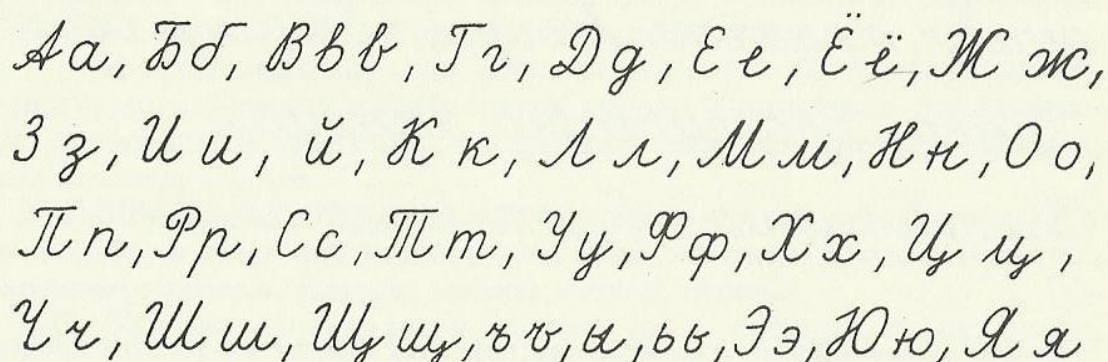 Аа, Бб, Ввв, Гг, Дд, Ее, Ёё, Жж,
Зз, Ии, й, Кк, Лл, Мм, Нн, Оо,
Пп, Рр, Сс, Тт, Уу, Фф, Хх, Цц,
Чч, Шш, Щщ, ъъ, ы, ьь, Ээ, Юю, Яя